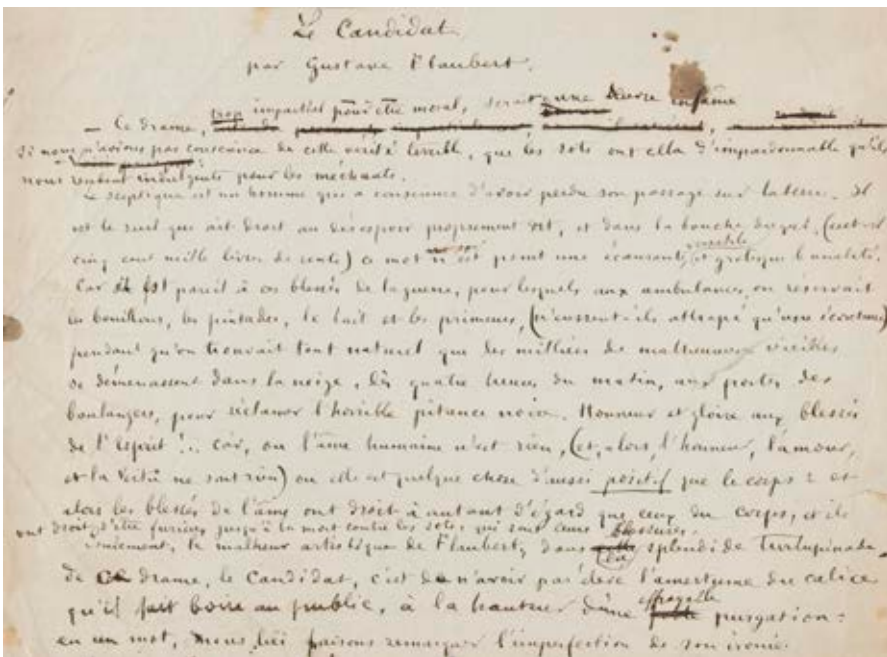 Le Candidat
par Gustave Flaubert.
— Ce drame, trop impartial pour être moral, serait une œuvre infâme
si nous n'avions pas conscience de cette vérité terrible, que les sots ont cela d'impardonnable qu'ils
nous rendent indulgents pour les méchants.
Le sceptique est un homme qui a conscience d'avoir perdu son passage sur la terre. Il
est le seul qui ait droit au désespoir proprement dit, et dans la bouche
cinq cent mille livres de rente) ce mot n'est point une écœurante, et grotesque banalité.
Car il est pareil à ces blessés de la guerre, pour lesquels aux ambulances, on réservait
les bouillons, les pintades, le lait et les primeurs, (n'eussent-ils attrapé qu'une écorchure)
pendant qu'on trouvait tout naturel que des milliers de malheureux
se démenassent dans la neige, dès quatre heures du matin, aux portes des
boulangers, pour réclamer l'horrible pitance noire. Honneur et gloire aux blessés
de l'esprit !.. car, ou l'âme humaine n'est rien, (et, alors, l'honneur, l'amour,
et la vertu ne sont rien) ou elle est quelque chose d'aussi positif que le corps : et
alors les blessés de l'âme ont droit à autant d'égard que ceux du corps, et ils
ont droit d'être furieux jusqu'à la mort contre les sots qui sont leurs blessures.
Seulement, le malheur artistique de Flaubert, dans sa splendide Turlupinade
de ce drame, le Candidat, c'est de n'avoir pas élevé l'amertume du calice
qu'il fait boire au public, à la hauteur d'une effroyable purgation :
en un mot, nous lui faisons remarquer l'imperfection de son ironie.